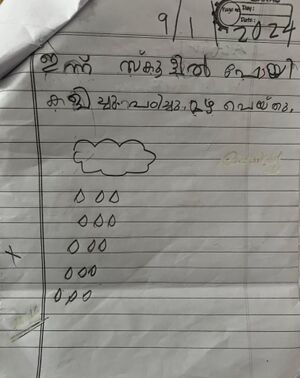 Page No:
Day:
Date:
9/1/2024
ഇന്ന് സ്കൂളിൽ പോയി
കളിച്ചു. പഠിച്ചു. മഴ പെയ്തു.